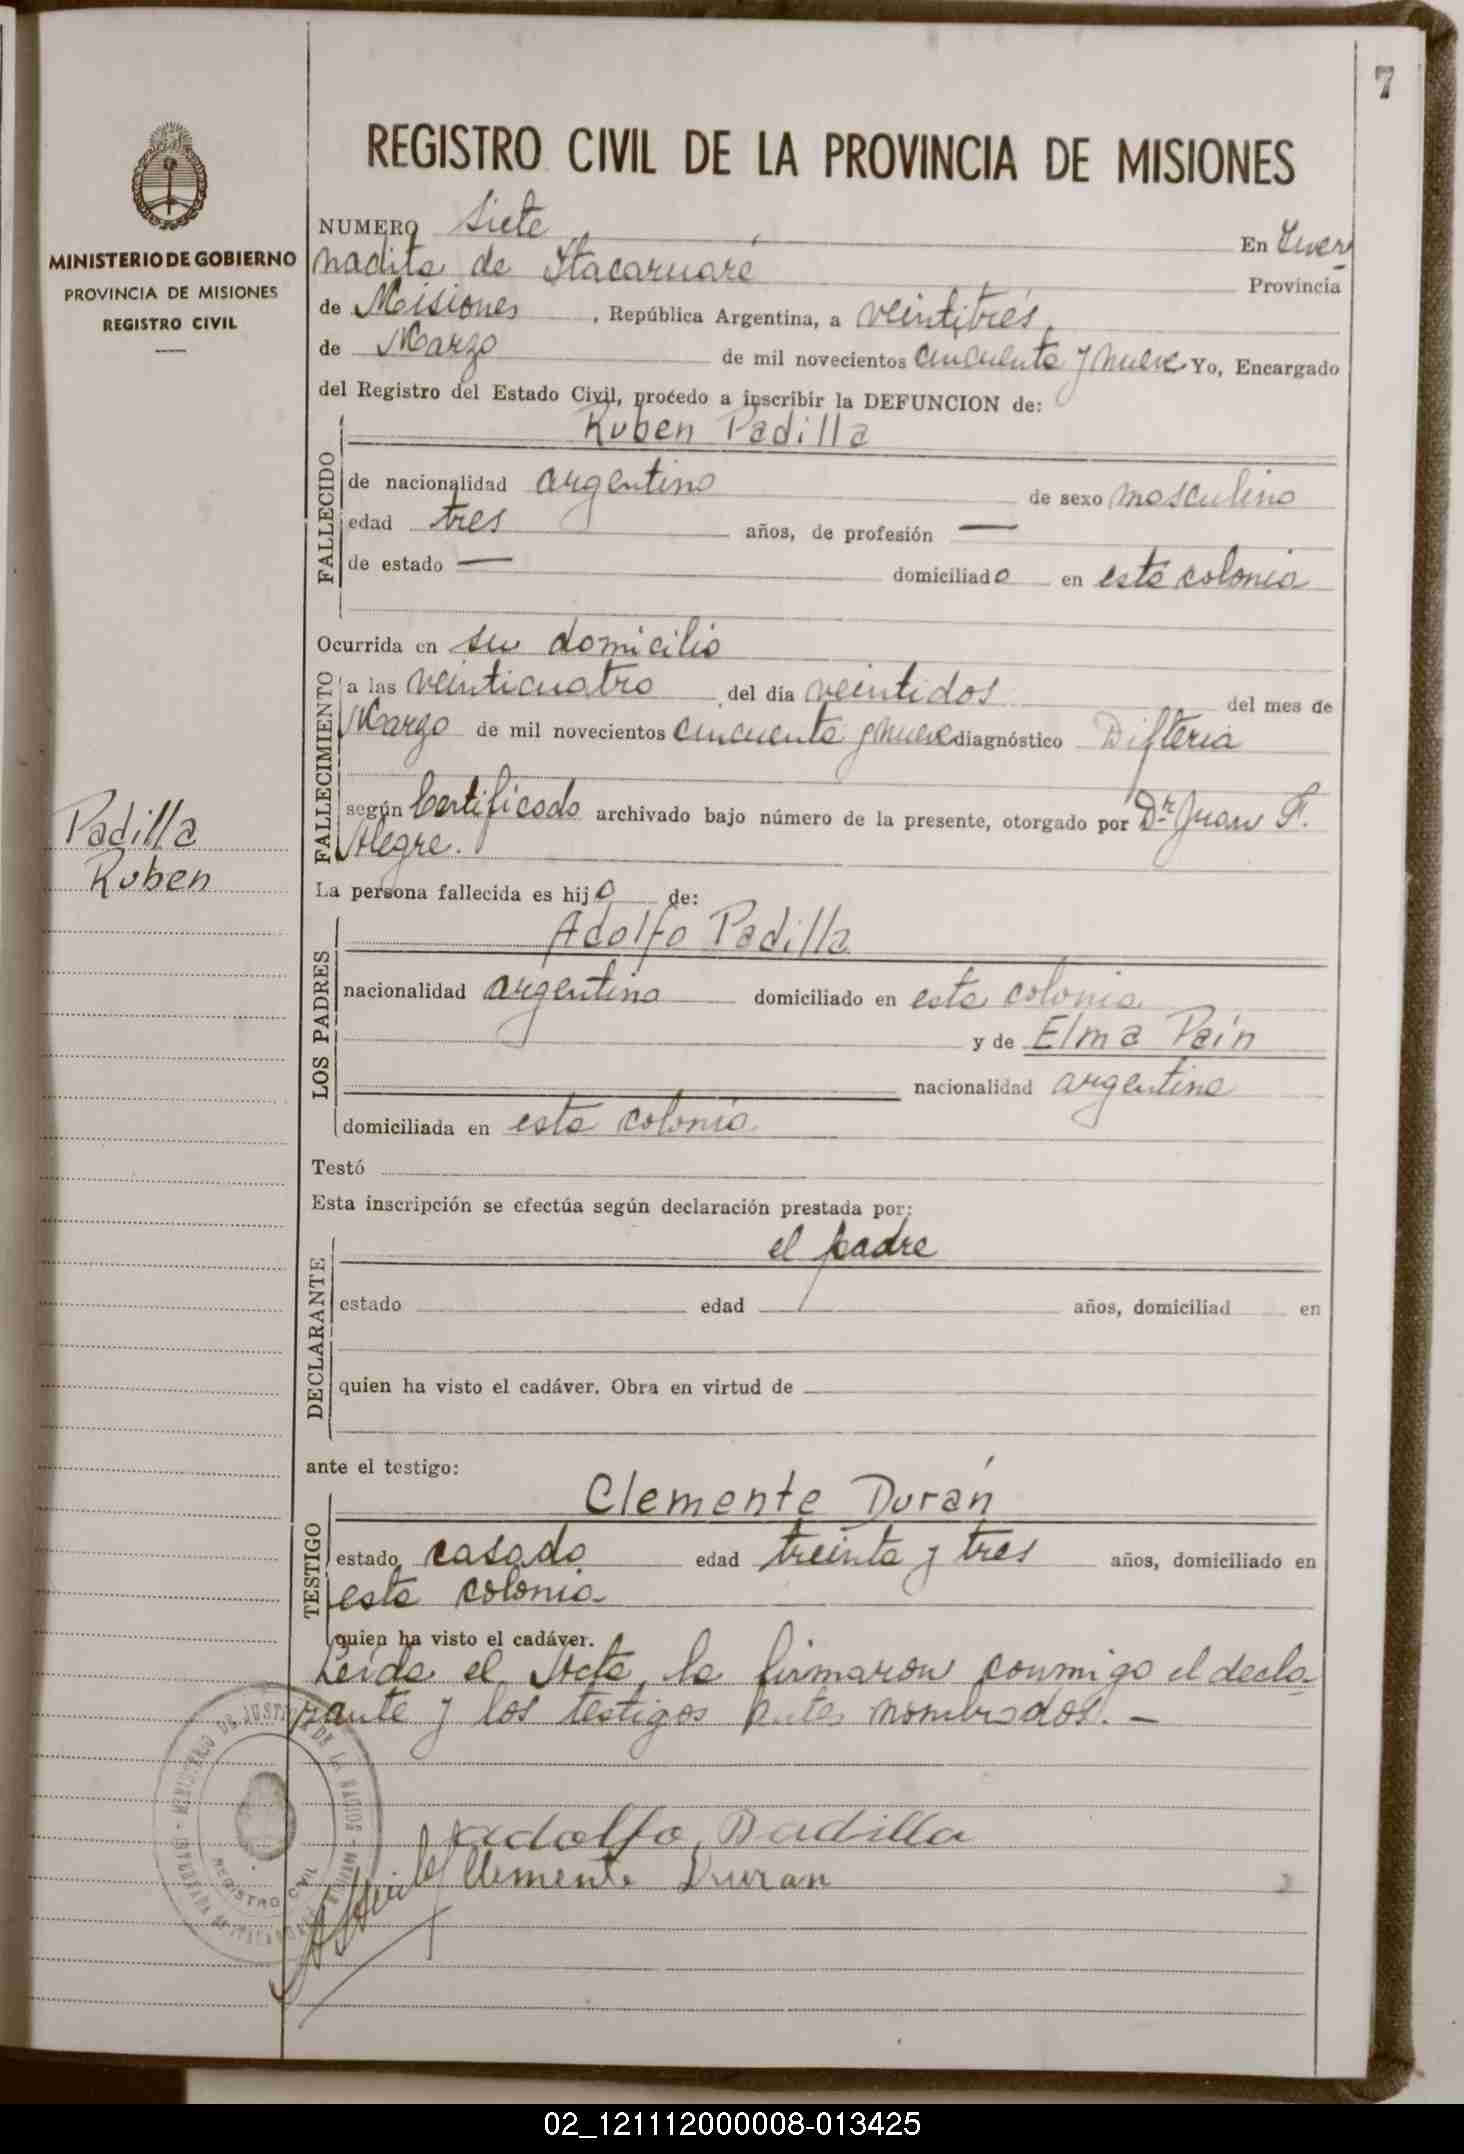 7
REGISTRO CIVIL DE LA PROVINCIA DE MISIONES
MINISTERIO DE GOBIERNO
PROVINCIA DE MISIONES
REGISTRO CIVIL
NUMERO Siete En Inver
nadita de Itacaruaré Provincia
de Misiones, República Argentina, a veintitrés
de Marzo de mil novecientos cincuenta y nueve Yo, Encargado
del Registro del Estado Civil, procedo a inscribir la DEFUNCION de:
Ruben Padilla
FALLECIDO
de nacionalidad argentino de sexo masculino
edad tres años, de profesión —
de estado — domiciliado en esta colonia
Ocurrida en su domicilio
FALLECIMIENTO
a las veinticuatro del día veintidos del mes de
Marzo de mil novecientos cincuenta y nueve diagnóstico Difteria
según Certificado archivado bajo número de la presente, otorgado por Dr. Juan F.
Alegre.
Padilla
Ruben
La persona fallecida es hijo de:
LOS PADRES
Adolfo Padilla
nacionalidad argentina domiciliado en esta colonia
y de Elma Pain
nacionalidad argentina
domiciliada en esta colonia
Testó
Esta inscripción se efectúa según declaración prestada por:
DECLARANTE
el padre
estado edad años, domiciliad en
quien ha visto el cadáver. Obra en virtud de
ante el testigo:
TESTIGO
Clemente Durán
estado casado edad treinta y tres años, domiciliado en
esta colonia
quien ha visto el cadáver.
Leída el Acta, la firmaron conmigo el decla-
rante y los testigos antes nombrados. —
Adolfo Padilla
Clemente Duran
REGISTRO CIVIL
02_121112000008-013425